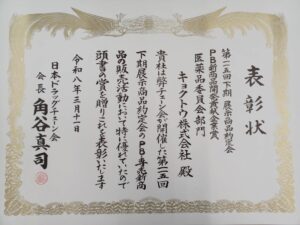 表彰状
第一二五回下期展示商品約定会
PB新商品開発貢献企業賞
医薬品委員会部門
キョクトウ株式会社 殿
貴社は弊チェーン会が開催した第一二五回
下期展示商品約定会のPB専売新商
品の販売活動において特に優れていたので
頭書の賞を贈りこれを表彰いたします
令和八年三月十一日
日本ドラッグチェーン会
会長 角谷真司